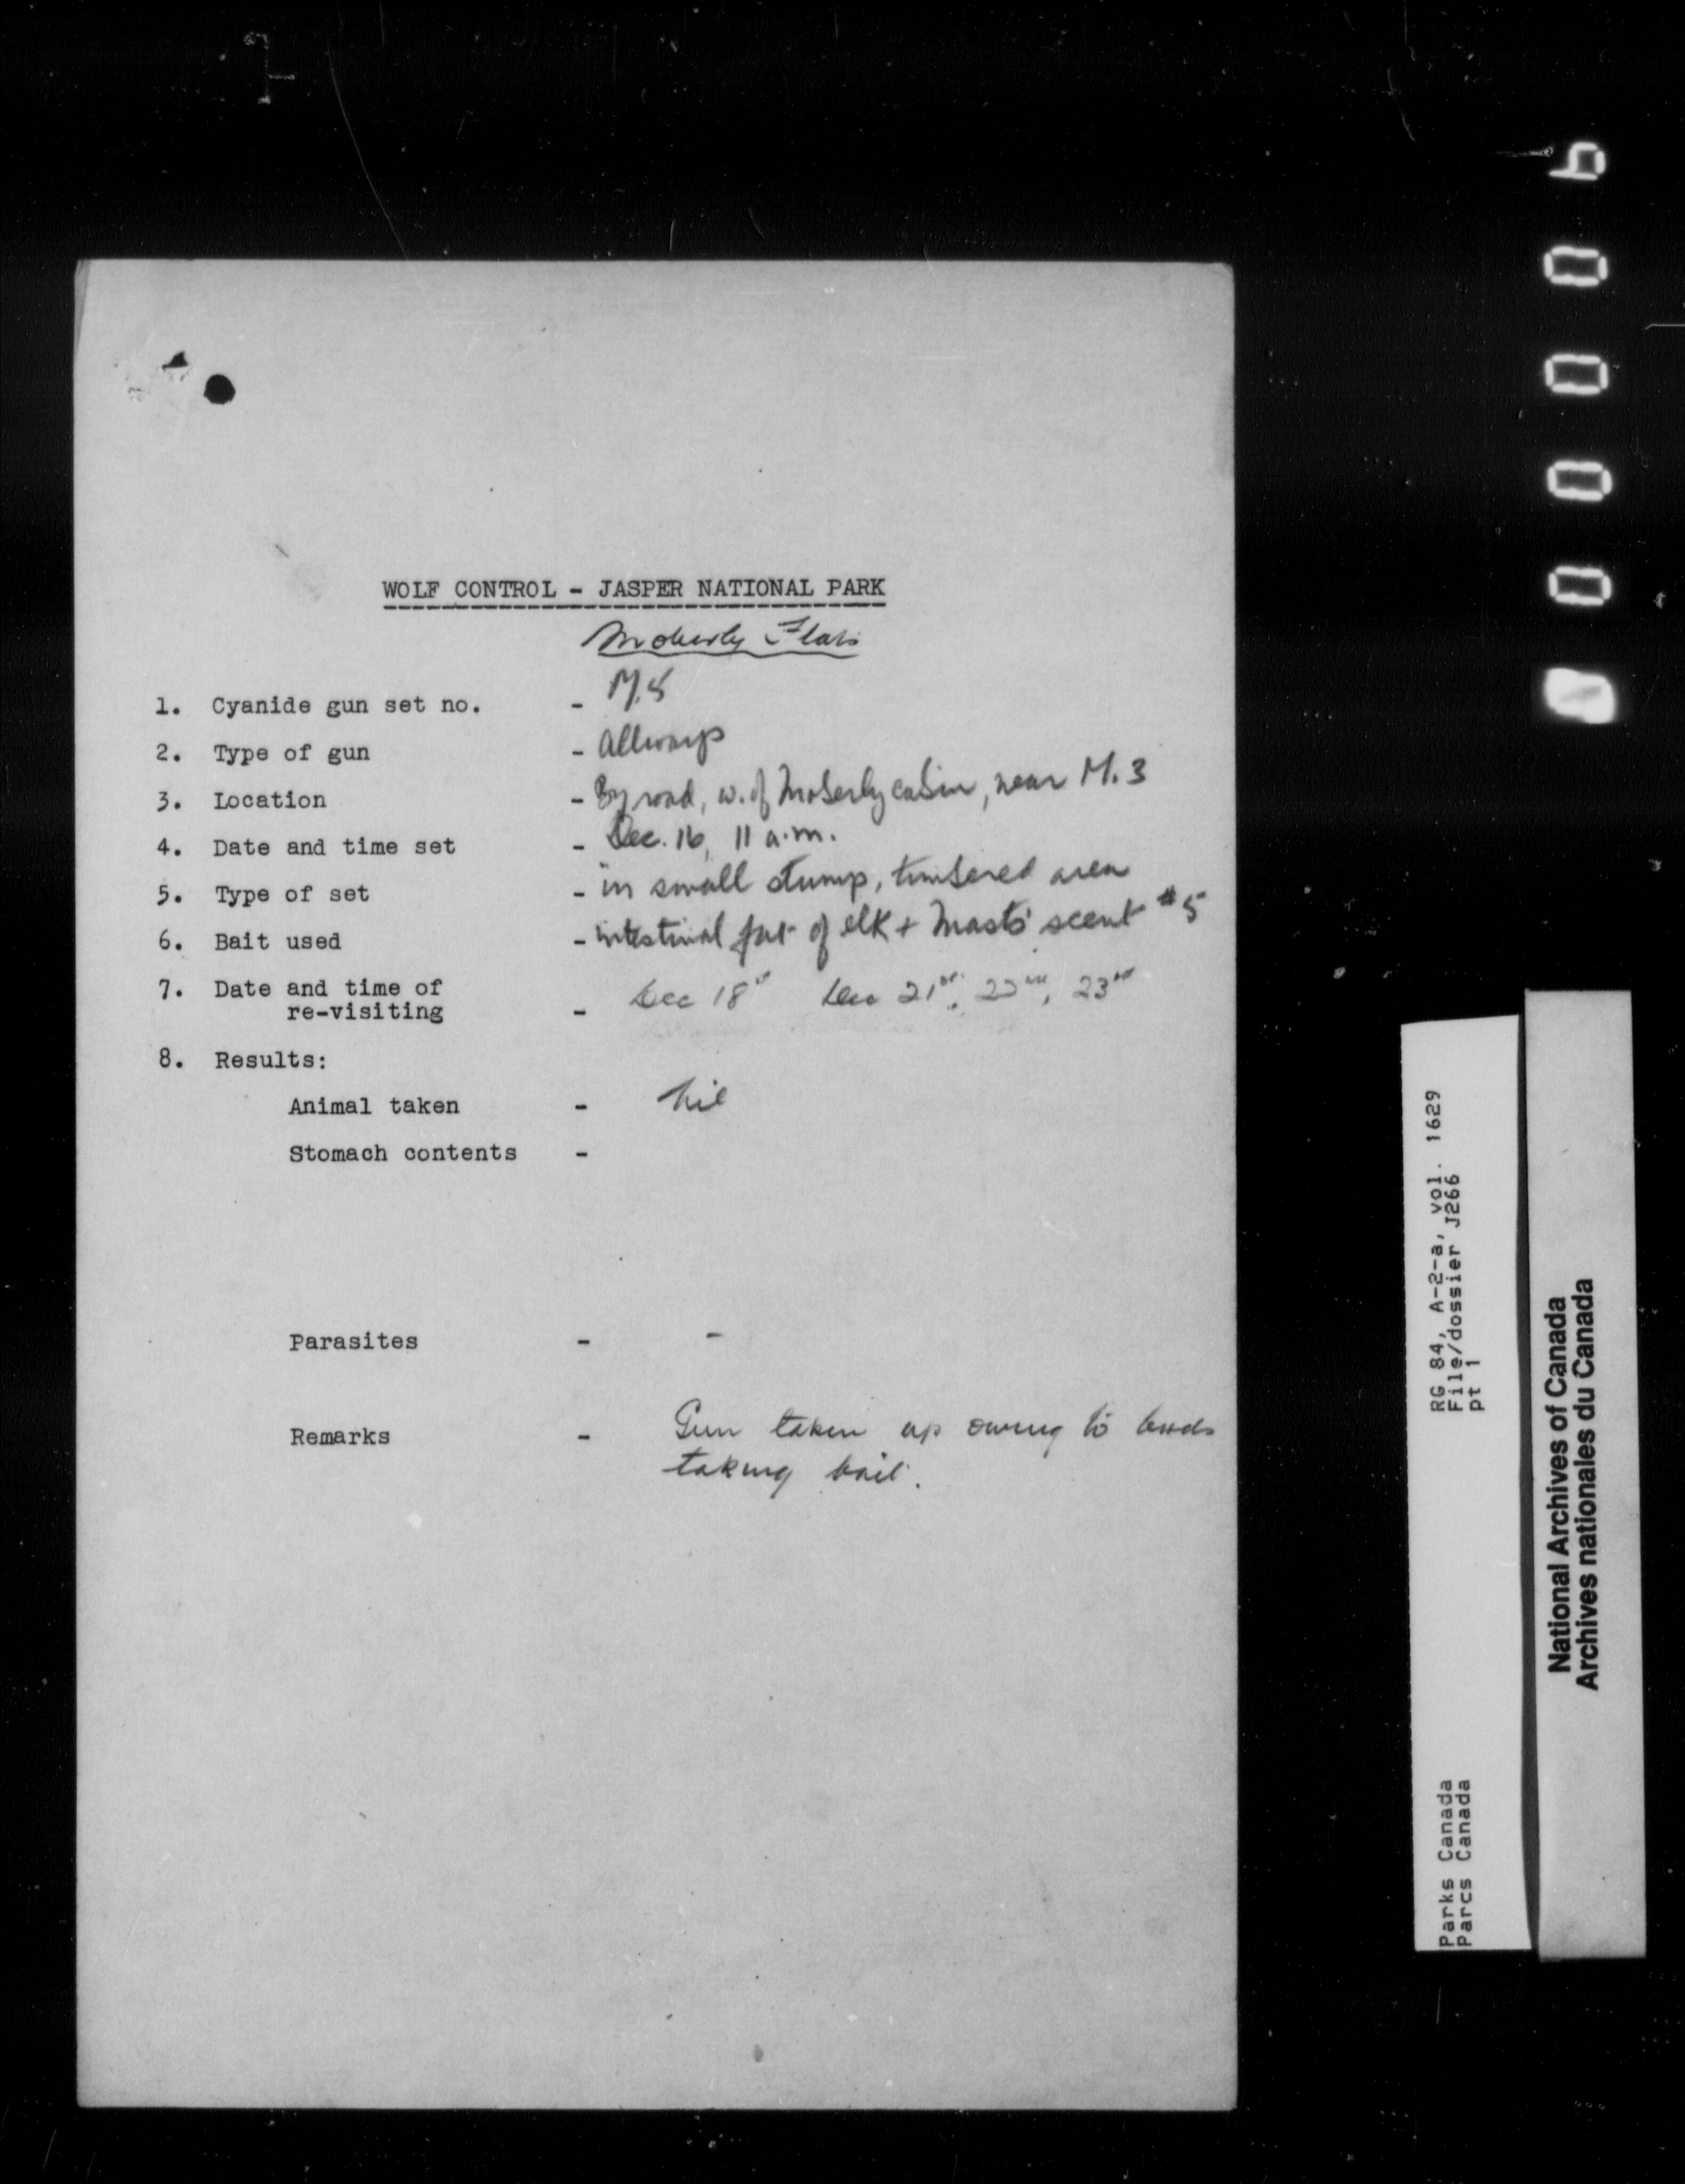 WOLF CONTROL - JASPER NATIONAL PARK
Moberly Flats
1. Cyanide gun set no. - M.5
2. Type of gun - Allways
3. Location - By road, w. of Moberly cabin, near M.3
4. Date and time set - Dec. 16, 11 a.m.
5. Type of set - in small stump, timbered area
6. Bait used - intestinal fat of elk + Mast's scent #5
7. Date and time of
re-visiting - Dec 18th Dec 21st, 22nd, 23rd
8. Results:
Animal taken - nil
Stomach contents -
Parasites - -
Remarks - Gun taken up owing to birds
taking bait.
RG 84, A-2-a, vol. 1629
File/dossier J266
pt 1
Parks Canada
Parcs Canada
National Archives of Canada
Archives nationales du Canada